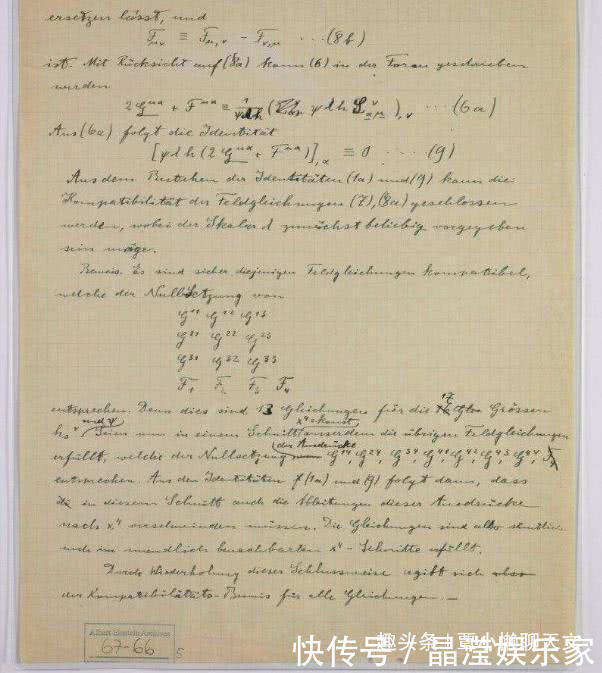 ersetzen lässt, und
F_{μν} ≡ F_{μ,ν} - F_{ν,μ} ... (8b)
ist. Mit Rücksicht auf (8a) kann (6) in der Form geschrieben
werden
2 G^{μα} + F^{μα} ≡ (ψ λ h ),ν ... (6a)
Aus (6a) folgt die Identität
[ψ λ h (2 G^{μα} + F^{μα})],α ≡ 0 ... (9)
Aus dem Bestehen der Identitäten (1a) und (9) kann die
Kompatibilität der Feldgleichungen (7), (8a) geschlossen
werden, wobei der Skalar λ zunächst beliebig vorgegeben
sein möge.
Beweis. Es sind sicher diejenigen Feldgleichungen kompatibel,
welche der Nullsetzung von
G^{11} G^{12} G^{13}
G^{21} G^{22} G^{23}
G^{31} G^{32} G^{33}
F_1 F_2 F_3 F_4
entsprechen. Denn dies sind 13 Gleichungen für die 17 Grössen
h_s^ν und ψ Seien nun in einem Schnitt x^4 = konst ausserdem die übrigen Feldgleichungen
erfüllt, welche der Nullsetzung der Ausdrücke G^{14}, G^{24}, G^{34}, G^{41}, G^{42}, G^{43}, G^{44},
entsprechen. Aus den Identitäten (1a) und (9) folgt dann, dass
in diesem Schnitt auch die Ableitungen dieser Ausdrücke
nach x^4 verschwinden müssen. Die Gleichungen sind also
im unendlich benachbarten x^4 - Schnitte erfüllt.
Durch Wiederholung dieser Schlussweise ergibt sich
der Kompatibilitäts-Beweis für alle Gleichungen. —
Albert Einstein Archives
67-66
5
趣头条
快传号 / 晶滢娱乐家